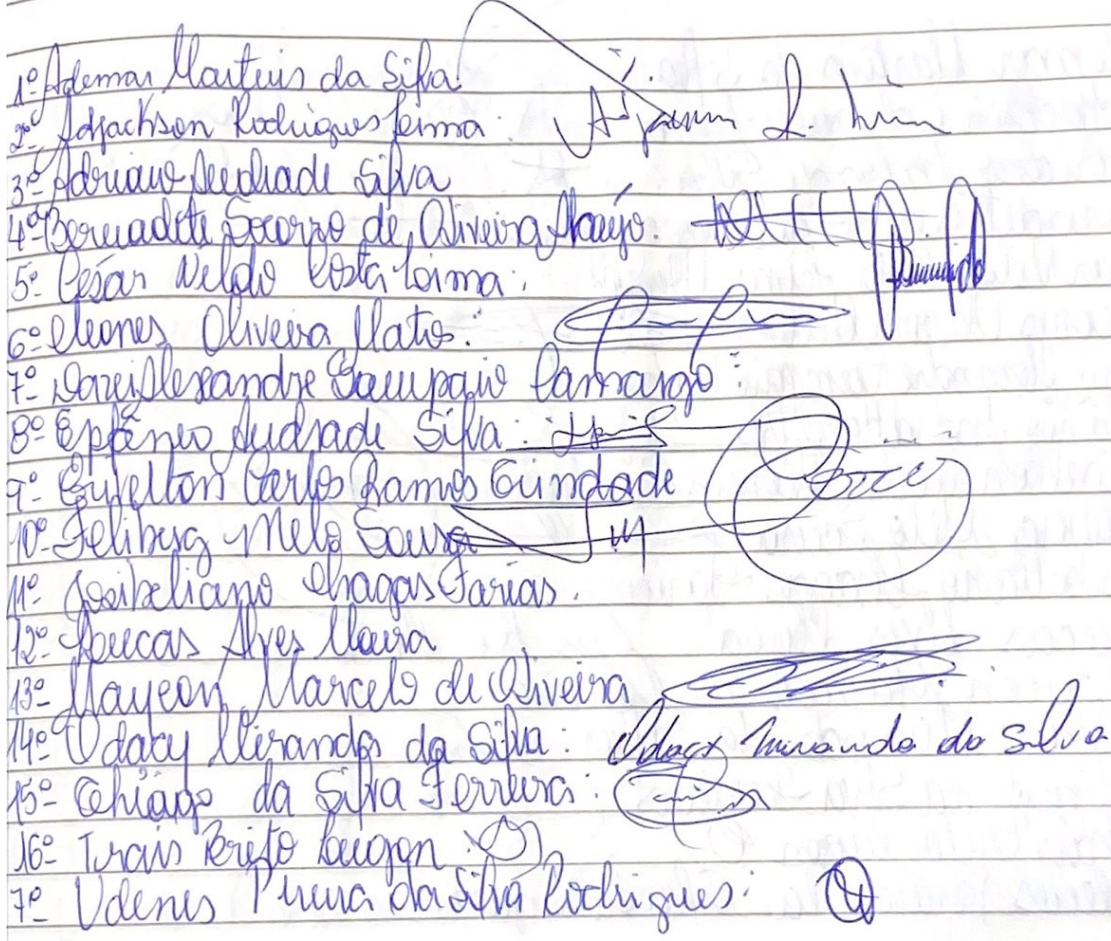 1º Ademar Martins da Silva
2º Adjackson Rodrigues Lima
3º Adriano Andrade Silva
4º Bernadete Socorro de Oliveira Araújo.
5º César Nildo Costa Lima.
6º Cleones Oliveira Matos:
7º Alexandre Sampaio Camargo:
8º Epfâneo Andrade Silva.
9º Carlos Ramos Trindade
10º Melo Souza
11º Chagas Farias.
12º Luccas Alves Moura
13º Maycon Marcelo de Oliveira
14º Odacy Miranda da Silva. Odacy Miranda da Silva
15º Thiago da Silva Ferreira:
16º Brito
7º Udenes da Silva Rodrigues.